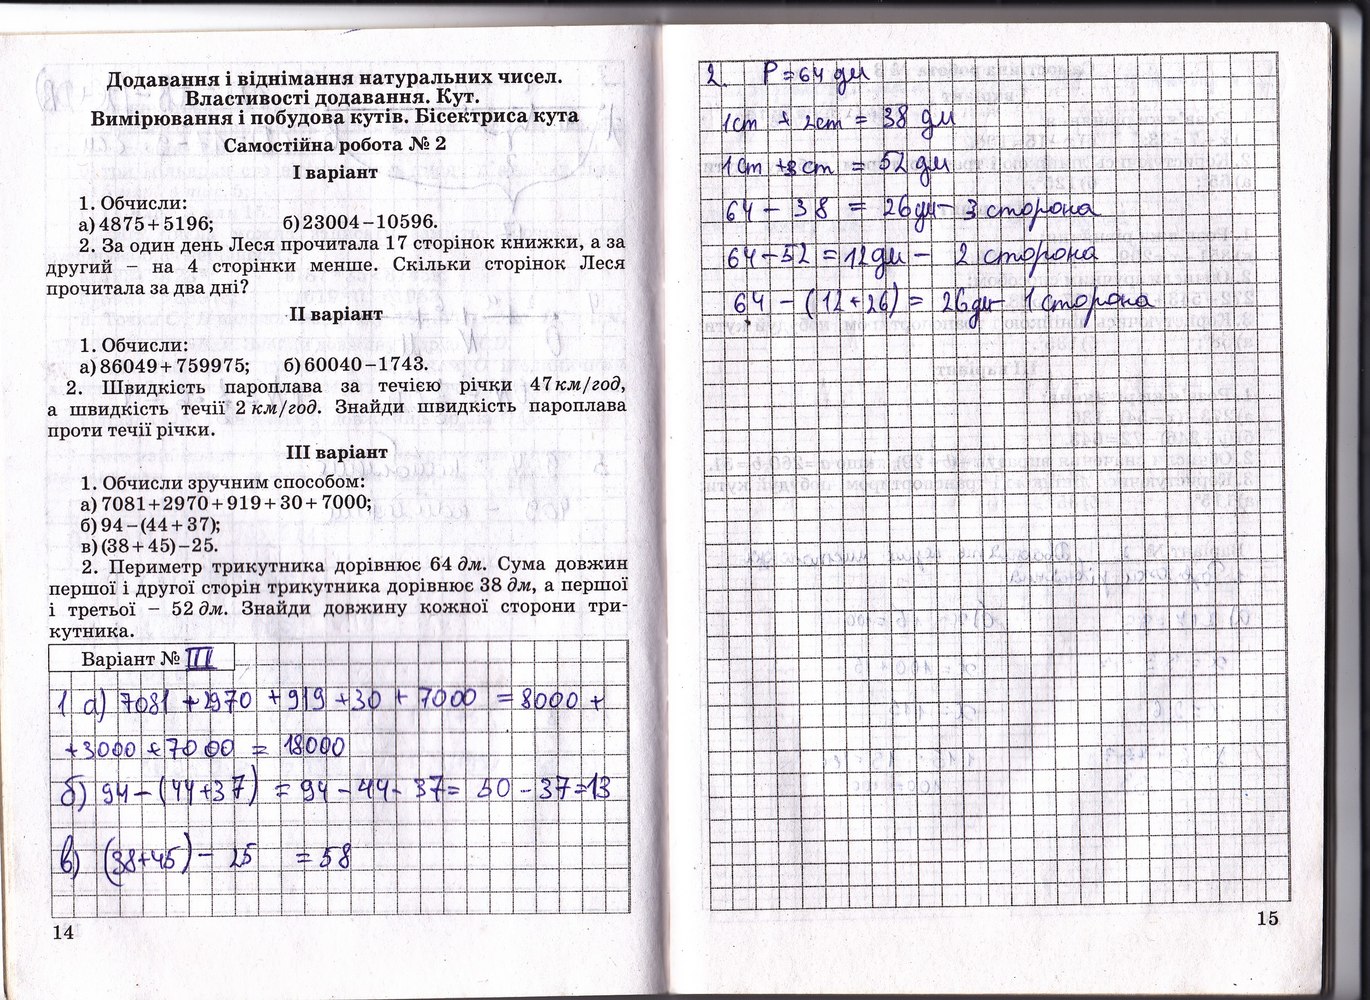 Додавання і віднімання натуральних чисел.
Властивості додавання. Кут.
Вимірювання і побудова кутів. Бісектриса кута
Самостійна робота № 2
І варіант
1. Обчисли:
а) 4875 + 5196; б) 23004 – 10596.
2. За один день Леся прочитала 17 сторінок книжки, а за
другий – на 4 сторінки менше. Скільки сторінок Леся
прочитала за два дні?
ІІ варіант
1. Обчисли:
а) 86049 + 759975; б) 60040 – 1743.
2. Швидкість пароплава за течією річки 47 км/год,
а швидкість течії 2 км/год. Знайди швидкість пароплава
проти течії річки.
ІІІ варіант
1. Обчисли зручним способом:
а) 7081 + 2970 + 919 + 30 + 7000;
б) 94 – (44 + 37);
в) (38 + 45) – 25.
2. Периметр трикутника дорівнює 64 дм. Сума довжин
першої і другої сторін трикутника дорівнює 38 дм, а першої
і третьої – 52 дм. Знайди довжину кожної сторони три-
кутника.
Варіант № III
1 а) 7081 + 2970 + 919 + 30 + 7000 = 8000 +
+3000 + 7000 = 18000
б) 94 – (44+37) = 94 – 44 – 37 = 50 – 37 = 13
в) (38+45) – 25 = 58
14
2. Р = 64 дм
1ст + 2ст = 38 дм
1ст + 3ст = 52 дм
64 – 38 = 26дм – 3 сторона
64 – 52 = 12дм – 2 сторона
64 – (12 + 26) = 26дм – 1 сторона
15